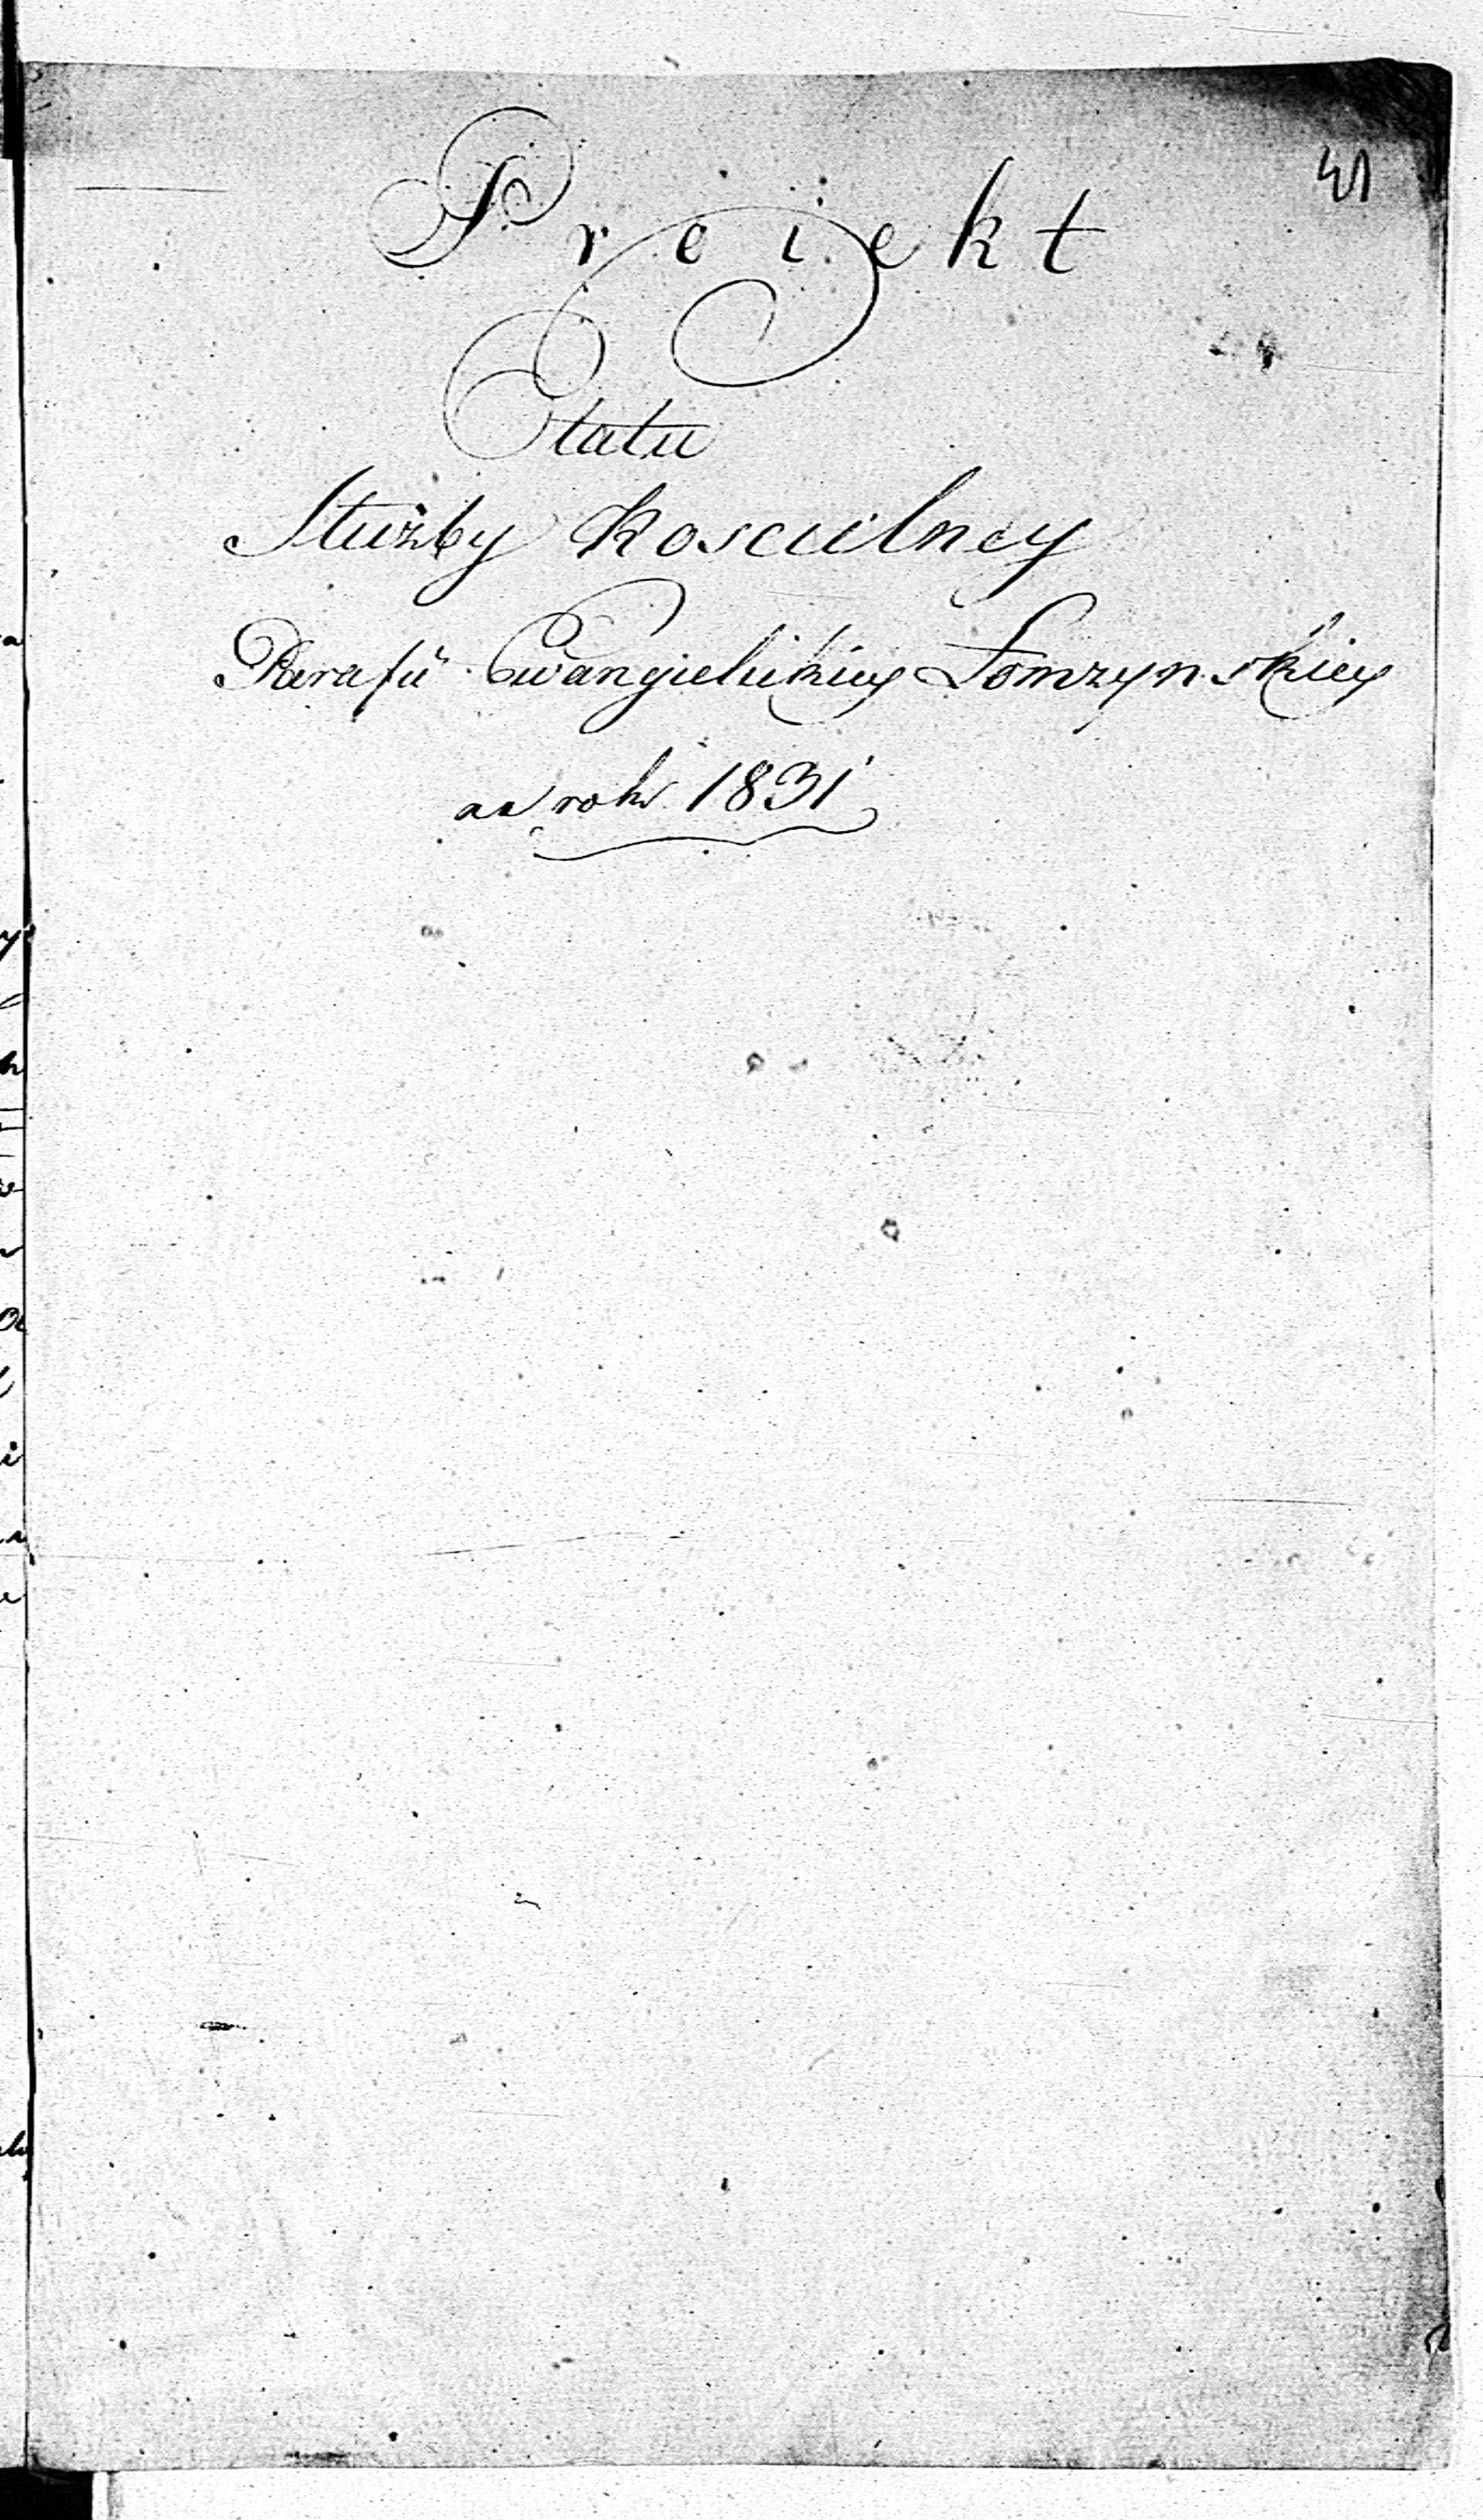 Projekt
Etatu
Służby Koscielney
Parafii Ewangielickiey Łomzynskiey
na rok 1831